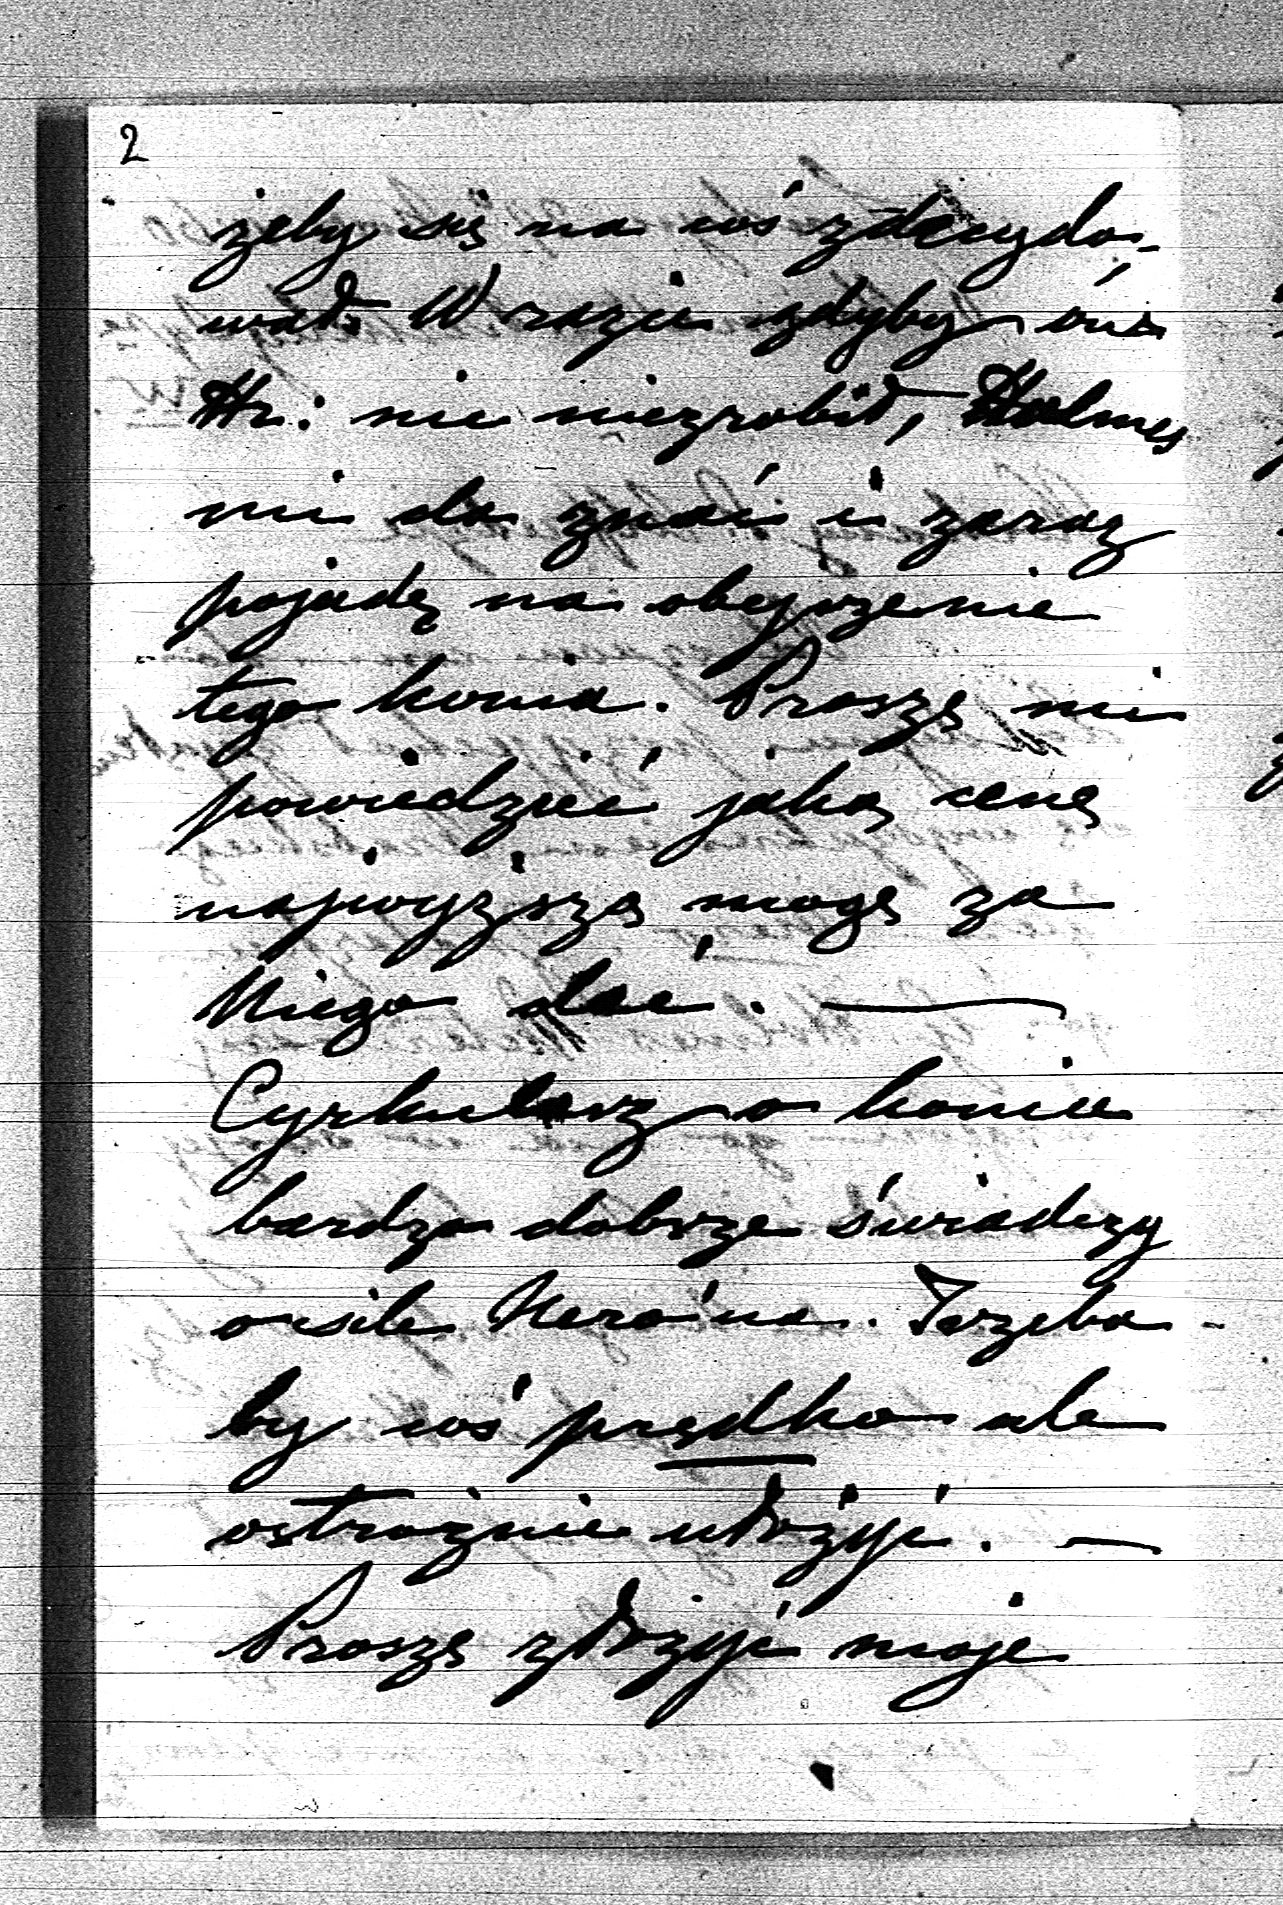 2
żeby się na coś zdecydo-
wać. W razie gdyby
Hr. nic niezrobił, Holmes
mi da znać i zaraz
pojadę na obejrzenie
tego konia. Proszę mi
powiedzieć jaką cenę
najwyższą mogę za
Niego dać. —
Cyrkularz o koniu
bardzo dobrze świadczy
o sile Heroína. Trzeba
by coś prędko ale
ostrożnie ułożyć. —
Proszę złożyć moje